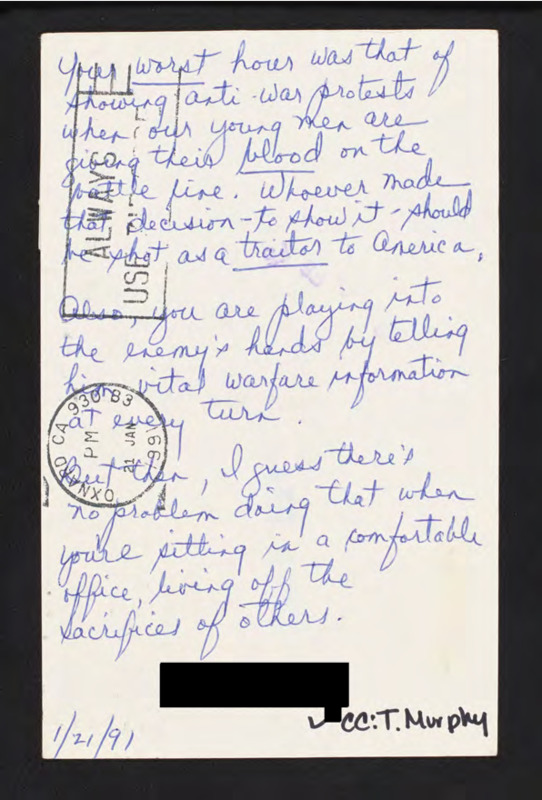 Your worst hour was that of
showing anti-war protests
when our young men are
giving their blood on the
battle line. Whoever made
that decision - to show it - should
be shot as a traitor to America.
Also, you are playing into
the enemy's hands by telling
him vital warfare information
at every turn.
But then, I guess there's
no problem doing that when
you're sitting in a comfortable
office, living off the
sacrifices of others.
ALWAYS
USE
OXNARD CA 930
PM
21 JAN
1991
CC: T. Murphy
1/21/91